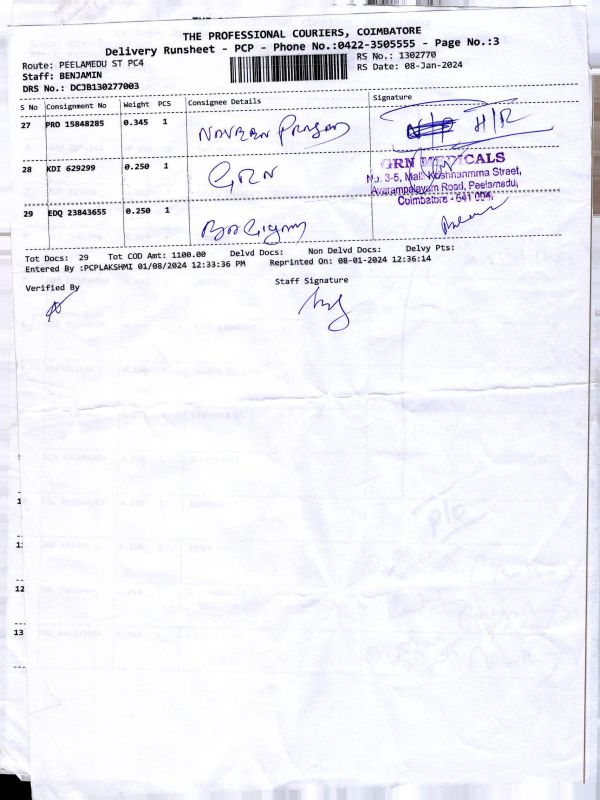 THE PROFESSIONAL COURIERS, COIMBATORE
Delivery Runsheet - PCP - Phone No.:0422-3505555 - Page No.:3
Route: PEELAMEDU ST PC4
RS No.: 1302770
Staff: BENJAMIN
RS Date: 08-Jan-2024
DRS No.: DCJB130277003
S No Consignment No Weight PCS Consignee Details Signature
27 PRO 15848285 0.345 1 NAVEEN PRASAD H/R
28 KDI 629299 0.250 1 GRN
GRN MEDICALS
No. 3-5, Mall Krishnamma Street,
Avarampalayam Road, Peelamedu,
Coimbatore - 641 004.
29 EDQ 23843655 0.250 1
Tot Docs: 29 Tot COD Amt: 1100.00 Delvd Docs: Non Delvd Docs: Delvy Pts:
Entered By :PCPLAKSHMI 01/08/2024 12:33:36 PM Reprinted On: 08-01-2024 12:36:14
Verified By
Staff Signature
12
13